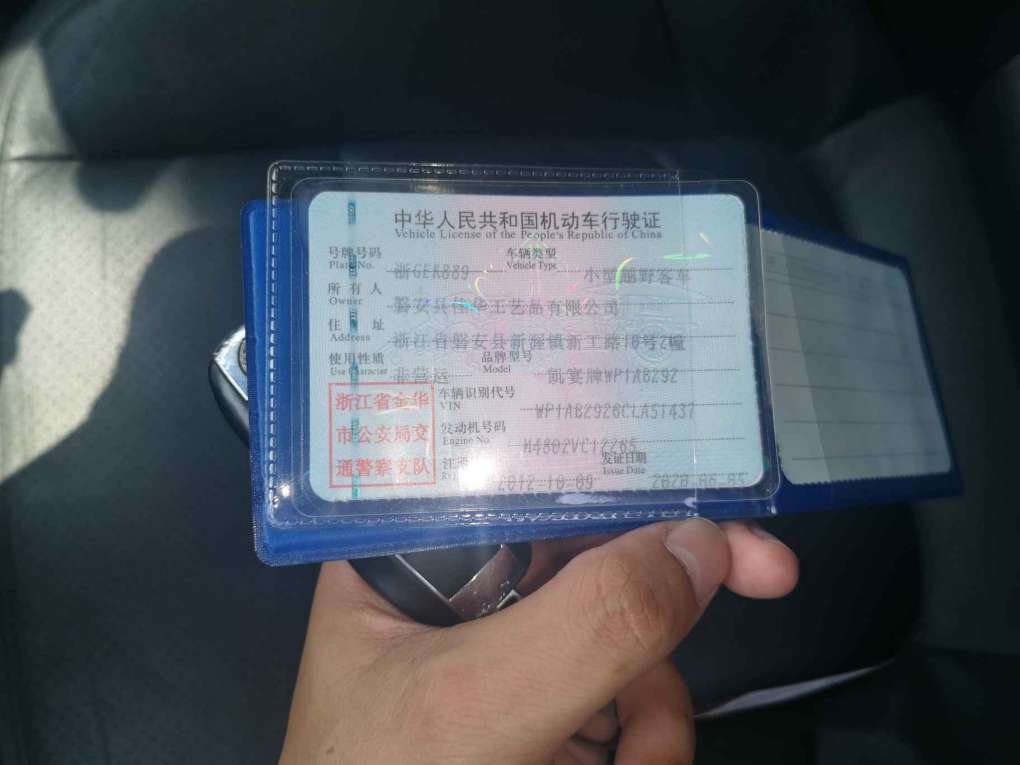 中华人民共和国机动车行驶证
Vehicle License of the People's Republic of China
号牌号码 浙GEK889 车辆类型 小型越野客车
Plate No. Vehicle Type
所有人 磐安县佳华工艺品有限公司
Owner
住址 浙江省磐安县新渥镇新工路18号2幢
Address
使用性质 非营运 品牌型号 凯宴牌WP1AB292
Use Character Model
浙江省金华
市公安局交
通警察支队
车辆识别代号 WP1AB2928CLA51437
VIN
发动机号码 M4802VC12265
Engine No.
注 2012-10-09 发证日期
Issue Date